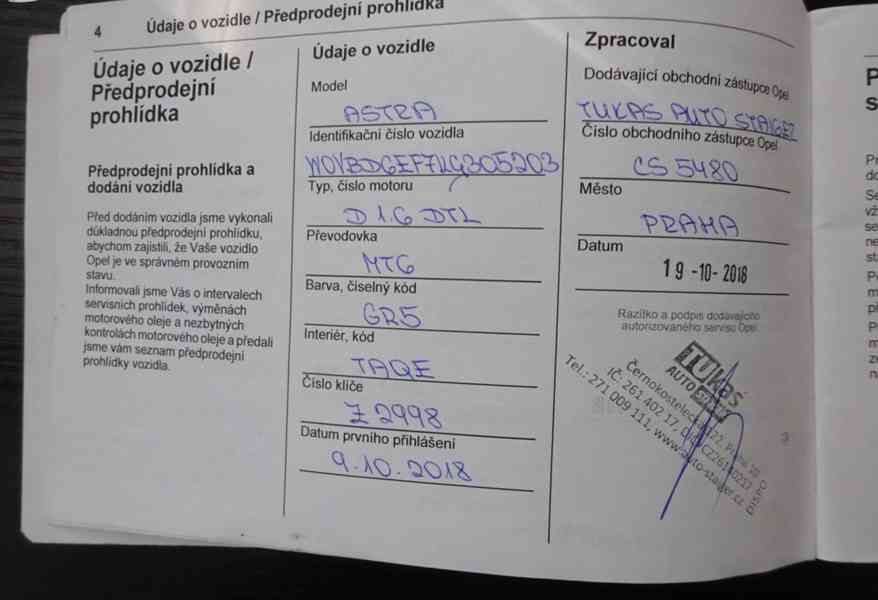 4
Údaje o vozidle / Předprodejní prohlídka
Údaje o vozidle /
Předprodejní
prohlídka
Předprodejní prohlídka a
dodání vozidla
Před dodáním vozidla jsme vykonali
důkladnou předprodejní prohlídku,
abychom zajistili, že Vaše vozidlo
Opel je ve správném provozním
stavu.
Informovali jsme Vás o intervalech
servisních prohlídek, výměnách
motorového oleje a nezbytných
kontrolách motorového oleje a předali
jsme vám seznam předprodejní
prohlídky vozidla.
Údaje o vozidle
Model
ASTRA
Identifikační číslo vozidla
W0VBDGEF7LG305203
Typ, číslo motoru
D 1.6 DTL
Převodovka
MT6
Barva, číselný kód
GR5
Interiér, kód
TAQE
Číslo klíče
Z 2998
Datum prvního přihlášení
9.10.2018
Zpracoval
Dodávající obchodní zástupce Opel
TUKAS AUTO STAIGER
Číslo obchodního zástupce Opel
CS 5480
Město
PRAHA
Datum
19-10-2018
Razítko a podpis dodávajícího
autorizovaného servisu Opel
TUKAS
AUTO
Černokostelecká
IČ: 261 402 17,
Tel.: 271 009 111, www.auto-staiger.cz
DISPO
3